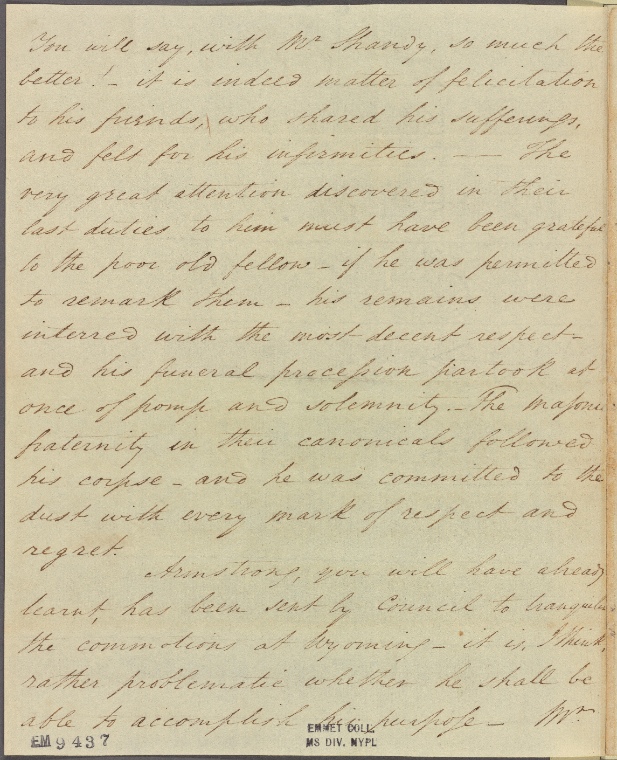 You will say, with Mr Shandy, so much the
better! - it is indeed matter of felicitation
to his friends, who shared his sufferings,
and felt for his infirmities. —— The
very great attention discovered in their
last duties to him must have been grateful
to the poor old fellow - if he was permitted
to remark them - his remains were
interred with the most decent respect -
and his funeral procession partook at
once of pomp and solemnity. - The masonic
fraternity in their canonicals followed
his corpse - and he was committed to the
dust with every mark of respect and
regret.
Armstrong, you will have already
learnt, has been sent by Council to
the commotions at Wyoming - it is, I think,
rather problematic whether he shall be
able to accomplish his purpose - Mr
EM 9437
EMMET COLL.
MS DIV. NYPL